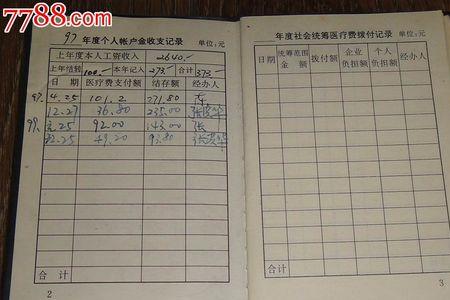 7788.com
97 年度个人帐户金收支记录 单位:元
上年度本人工资收入 2640.-
上年结转 100.- 本年记入 273.- 合计 373.-
日期 医疗费支付额 结存额 经办人
97. 4.25 101.2 271.80
12.27 36.80 235.00
92.00 143.00 张
49.20 93.80
合计
2
年度社会统筹医疗费拨付记录 单位:元
日期 统筹范围金额 拨付额 企业负担额 个人负担额 经办人
合计
3